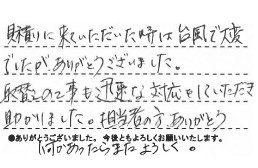 見積りに来ていただいた時は台風で大変
でしたが、ありがとうございました。
取替えの工事も迅速な対応をしていただき
助かりました。担当者の方、ありがとう
●ありがとうございました。今後ともよろしくお願いいたします。
何かあったらまたよろしく。